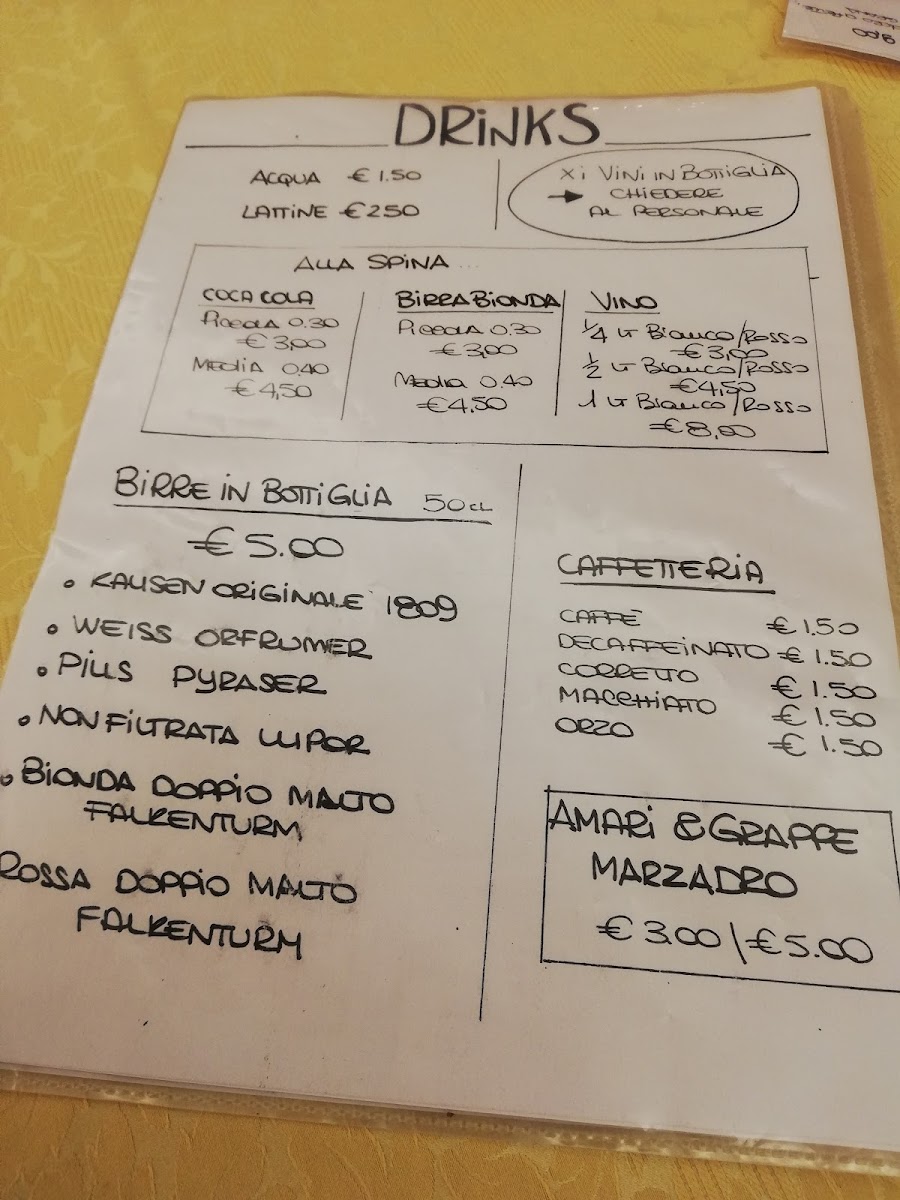 DRINKS
ACQUA € 1.50
LATTINE € 2.50
X i VINI IN BOTTIGLIA
→ CHIEDERE
AL PERSONALE
ALLA SPINA ...
COCA COLA
PICCOLA 0.30
€ 3,00
MEDIA 0.40
€ 4,50
BIRRA BIONDA
PICCOLA 0.30
€ 3,00
MEDIA 0.40
€ 4.50
VINO
1/4 LT BIANCO/ROSSO
€ 3,00
1/2 LT BIANCO/ROSSO
€ 4,50
1 LT BIANCO/ROSSO
€ 8,00
BIRRE IN BOTTIGLIA 50 CL
€ 5.00
• KAUSEN ORIGINALE 1809
• WEISS ORFRUMER
• PILLS PYRASER
• NON FILTRATA LUPOR
• BIONDA DOPPIO MALTO
FALKENTURM
ROSSA DOPPIO MALTO
FALKENTURM
CAFFETTERIA
CAFFÈ € 1.50
DECAFFEINATO € 1.50
CORRETTO € 1.50
MACCHIATO € 1.50
ORZO € 1.50
AMARI & GRAPPE
MARZADRO
€ 3.00 / € 5.00
9,00